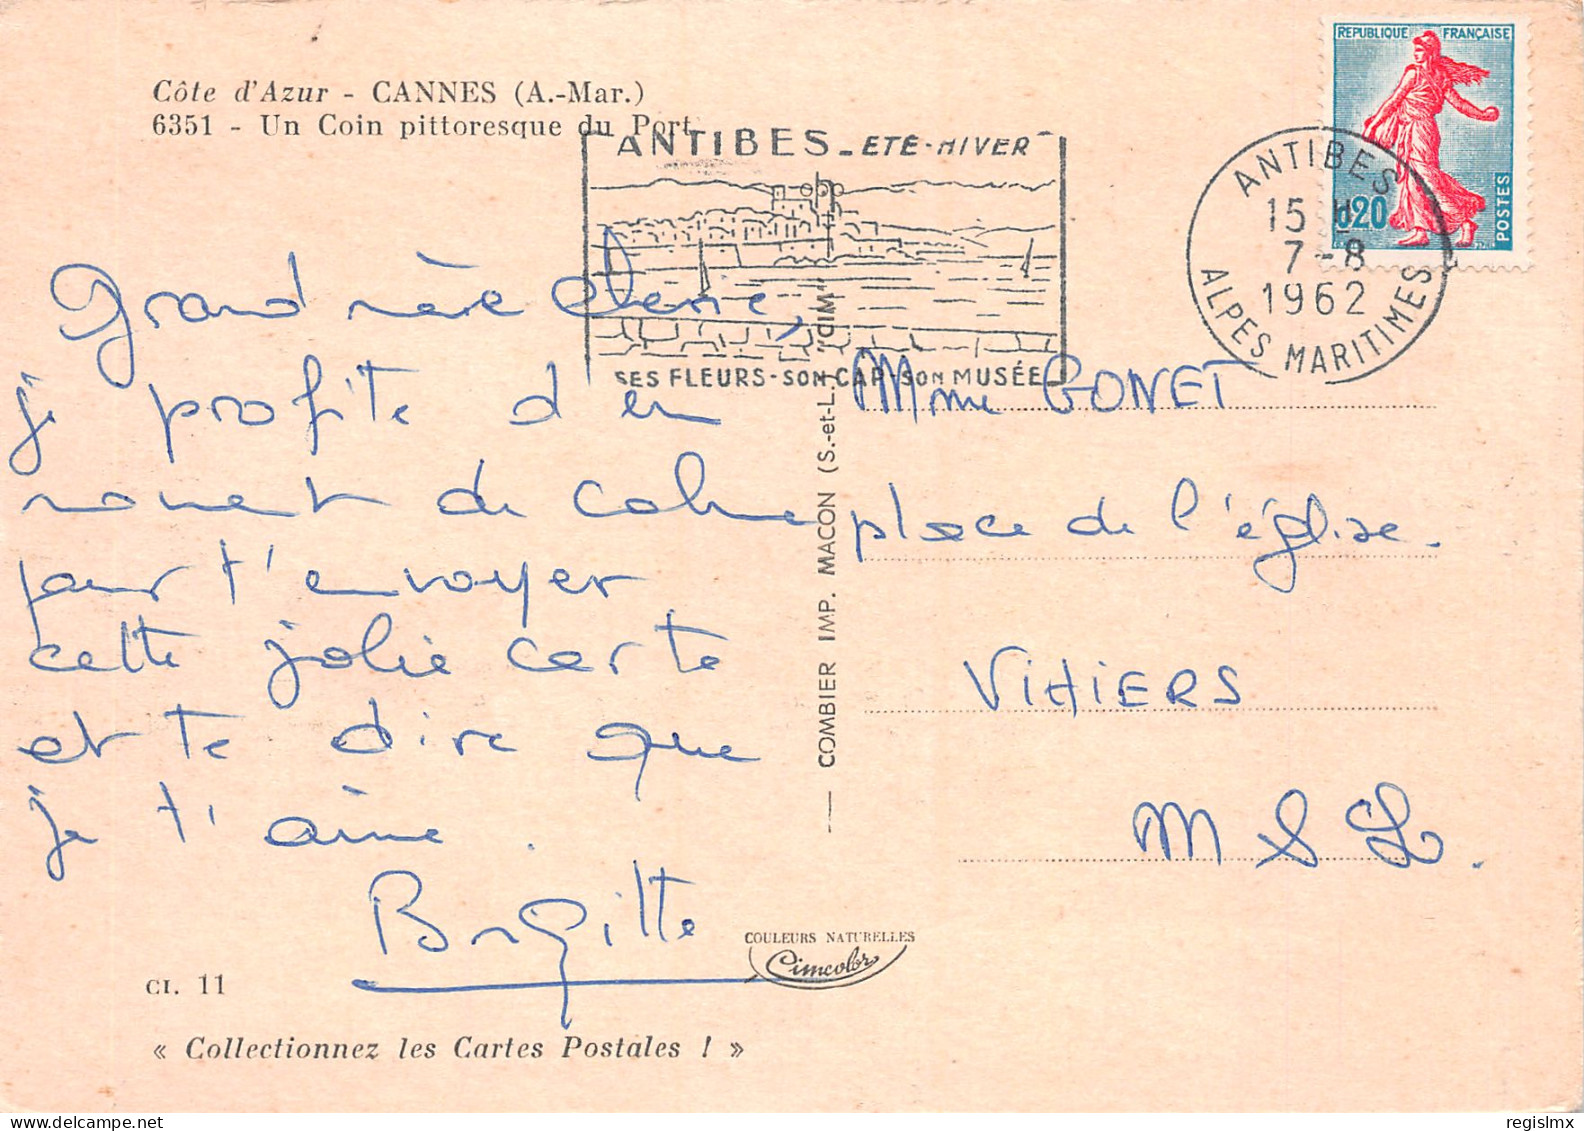 Côte d'Azur - CANNES (A.-Mar.)
6351 - Un Coin pittoresque du Port
ANTIBES - ETE - HIVER
SES FLEURS - SON CAP - SON MUSÉE
REPUBLIQUE FRANÇAISE
0,20
POSTES
ANTIBES
15 H
7-8
1962
ALPES MARITIMES
Grand mère cherie,
je profite d'un
moment de calme
pour t'envoyer
cette jolie carte
et te dire que
je t'aime.
Brigitte
Mme GONET
place de l'église.
VIHIERS
M & L.
COMBIER IMP. MACON (S.-et-L.) "CIM"
COULEURS NATURELLES
Cimcolor
CI. 11
« Collectionnez les Cartes Postales ! »
www.delcampe.net
regislmx